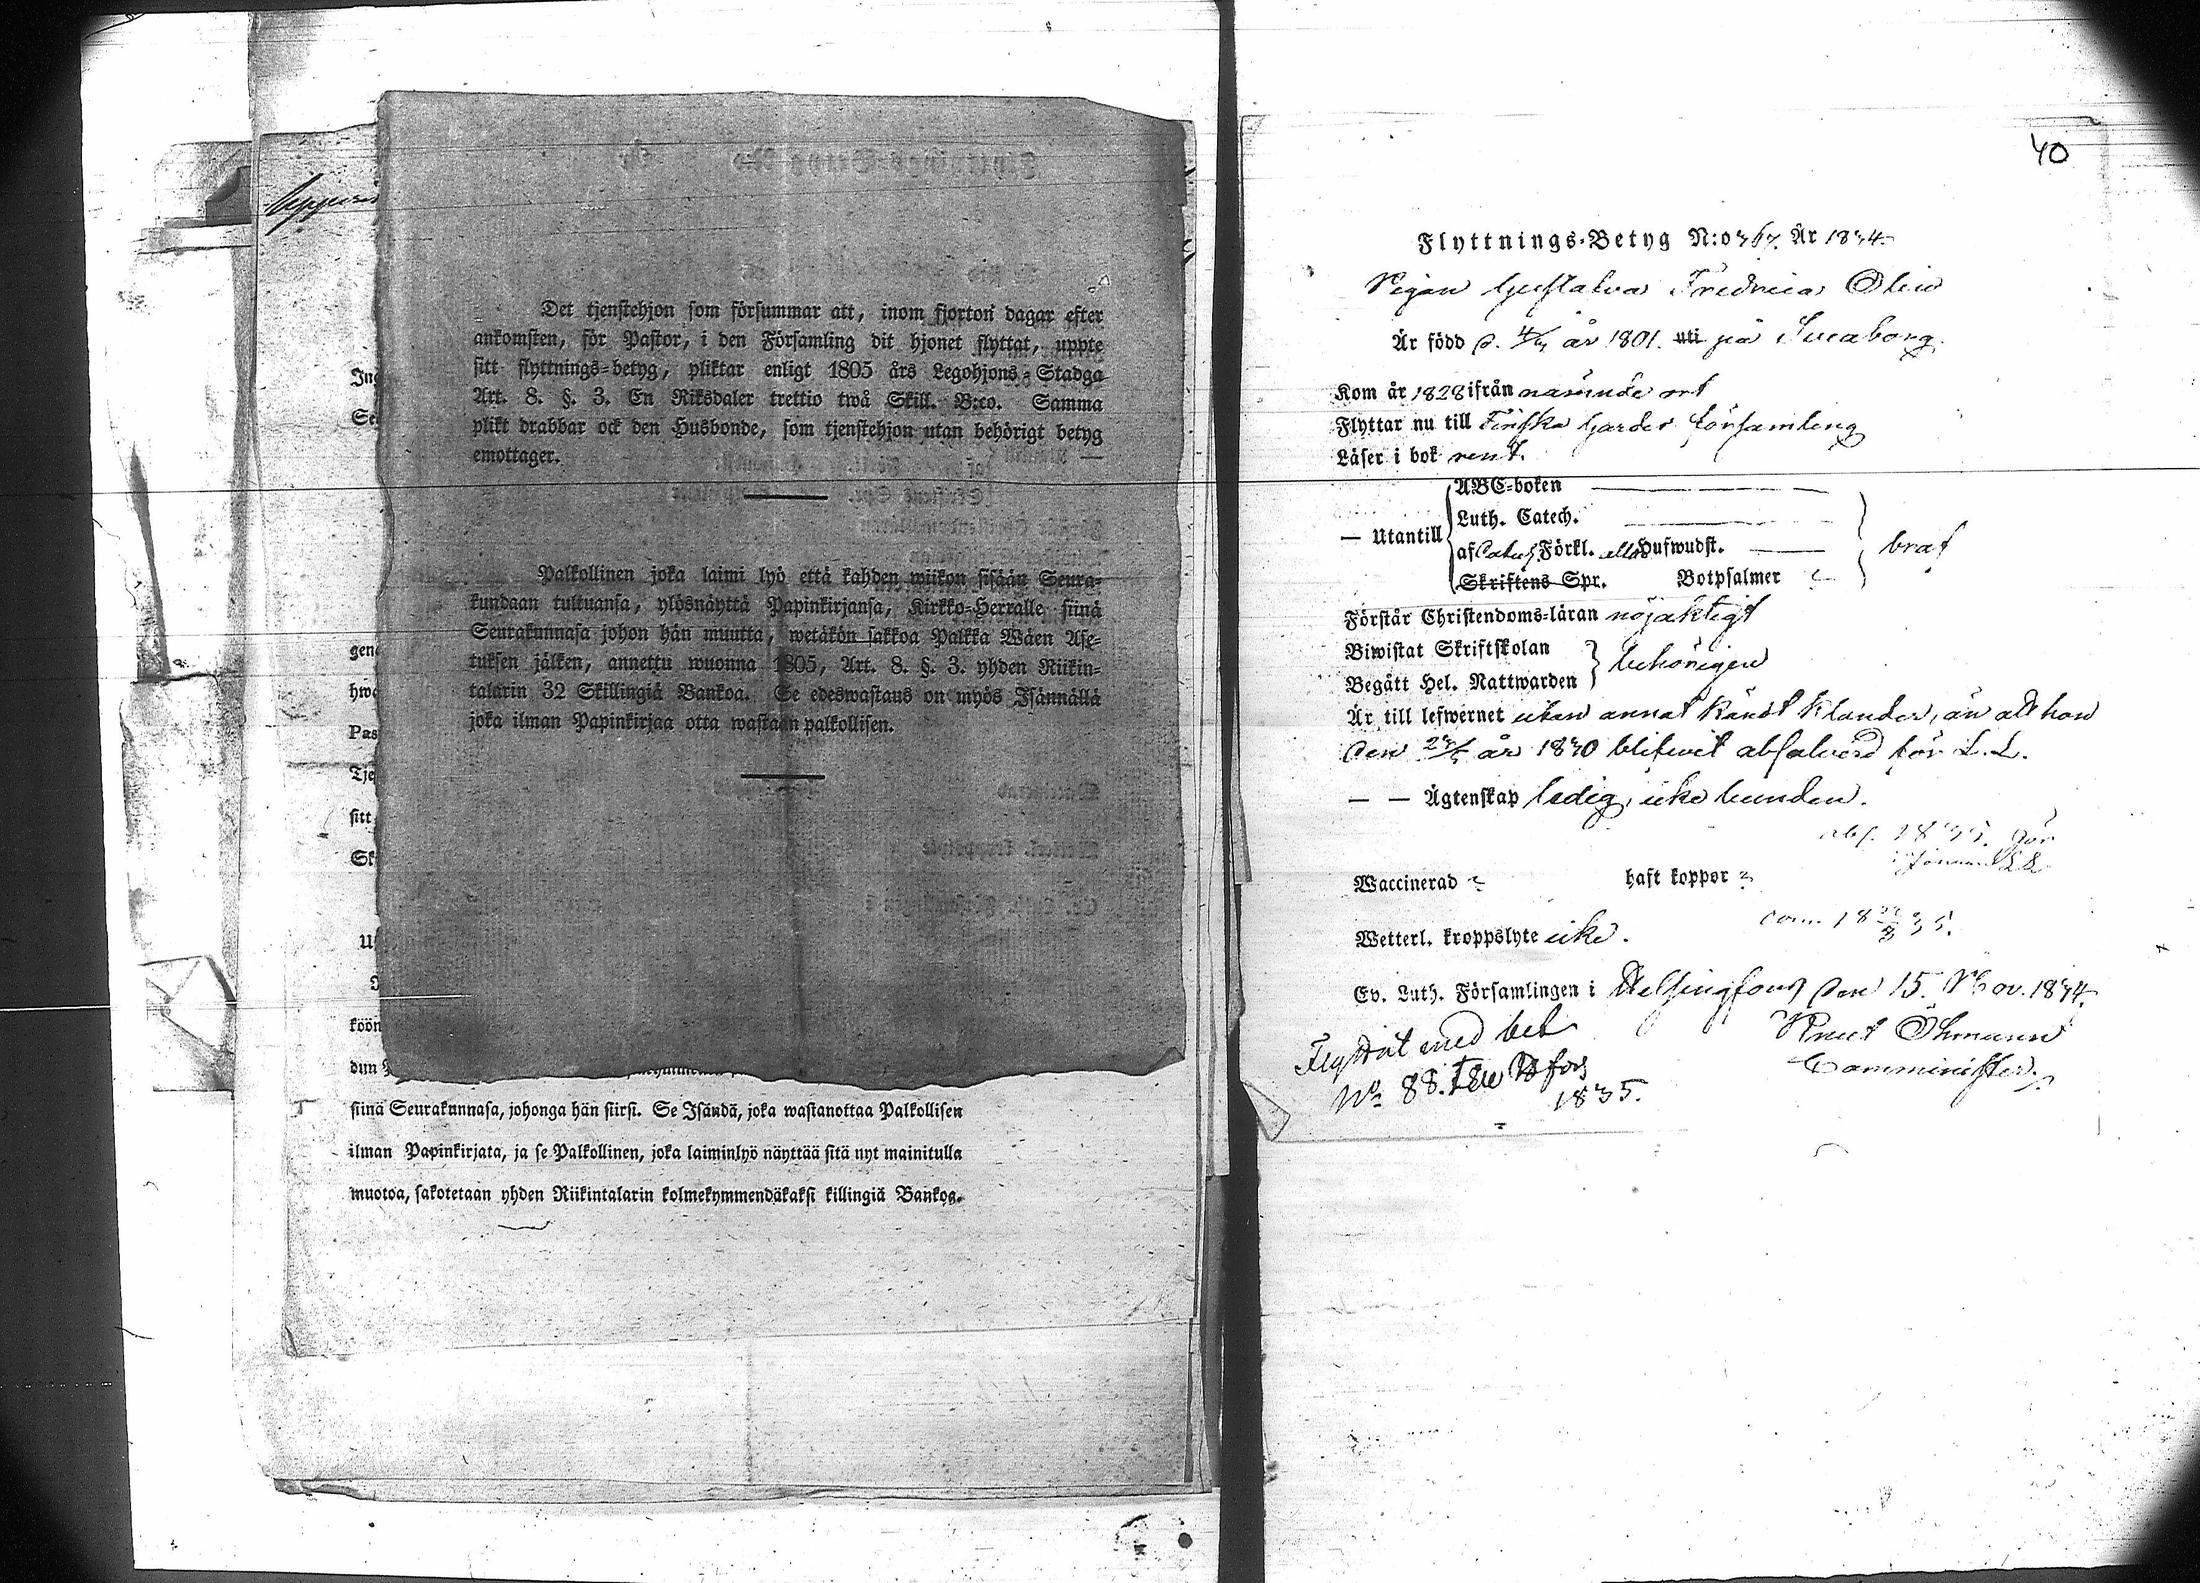 Det tjenstehjon som försummar att, inom fjorton dagar efter
ankomsten, för Pastor, i den Församling dit hjonet flyttat, uppte
sitt flyttnings-betyg, pliktar enligt 1805 års Legohjons-Stadga
Art. 8. §. 3. En Riksdaler trettio twå Skill. B:co. Samma
plikt drabbar ock den Husbonde, som tjenstehjon utan behörigt betyg
emottager.
Palkollinen joka laimi lyö että kahden wiikon sisään Seura-
kundaan tultuansa, ylösnäyttä Papinkirjansa, Kirkko-Herralle siinä
Seurakunnasa johon hän muutta, wetäkön sakkoa Palkka Wäen Ase-
tuksen jälken, annettu wuonna 1805, Art. 8. §. 3. yhden Riikin-
talarin 32 Skillingiä Bankoa. Se edeswastaus on myös Isännällä
joka ilman Papinkirjaa otta wastaan palkollisen.
siinä Seurakunnasa, johonga hän siirsi. Se Isändä, joka wastanottaa Palkollisen
ilman Papinkirjata, ja se Palkollinen, joka laiminlyö näyttää sitä nyt mainitulla
muotoa, sakotetaan yhden Riikintalarin kolmekymmendäkaksi killingiä Bankoa.
40
Flyttnings-Betyg N:o 367. År 1834.
Pigan Gustafva Fredrica Olin
Är född d. år 1801. uti på Sveaborg.
Kom år 1828 ifrån nämnde ort
Flyttar nu till Finska Gardes församling
Läser i bok rent.
— Utantill
ABC-boken
Luth. Catech.
af Förkl. Hufwudst.
Skriftens Spr. Botpsalmer
braf
Förstår Christendoms-läran nöjaktigt
Biwistat Skriftskolan
Begått Hel. Nattwarden
behörigen
Är till lefwernet utan annat kändt klander, än att hon
den år 1830 blifvit absolverd för L. L.
— — Ägtenskap ledig, icke bunden.
abs. 1835. för
L L
Waccinerad haft koppor
Wetterl. kroppslyte icke.
Ev. Luth. Församlingen i Helsingfors den 15. Nov. 1834.
Knut Öhmann
Comminister.
Flyttat med bet
No 88. till H:fors
1835.